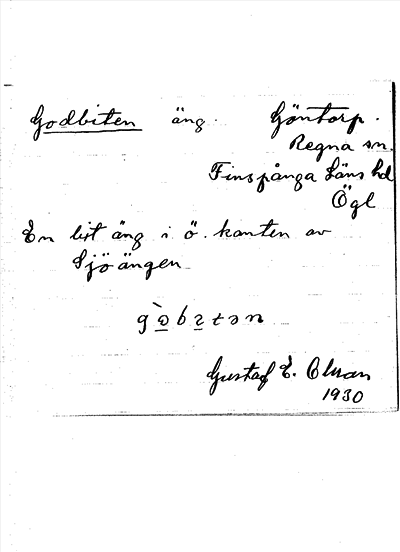 Godbiten äng. Göntorp.
Regna sn.
Finspånga Läns hd
Ögl
En lixt äng i ö. kanten av
Sjöängen
Gustaf E.
1930